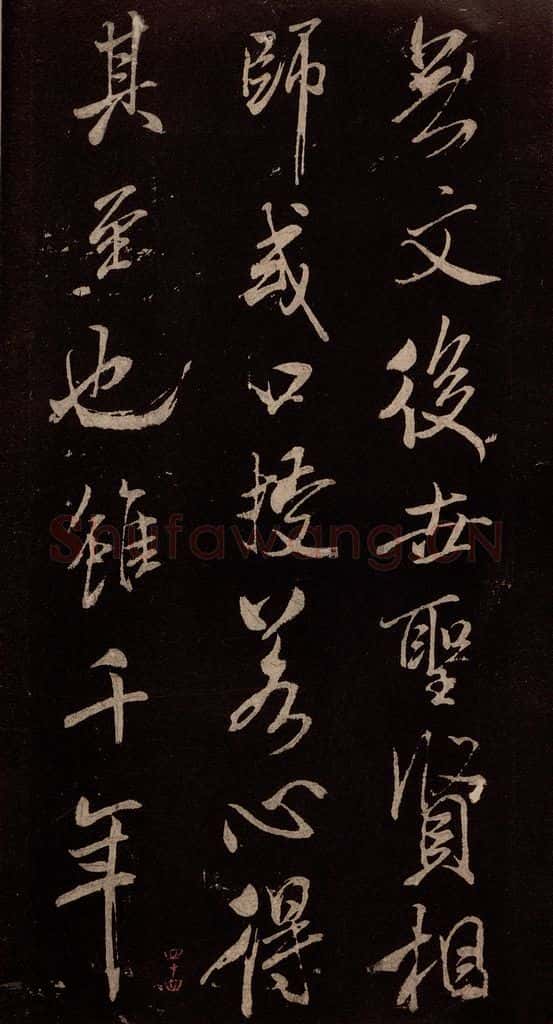 文後世聖賢相
師或口授若心得
其至也雖千年
四十四
Shufawang.CN